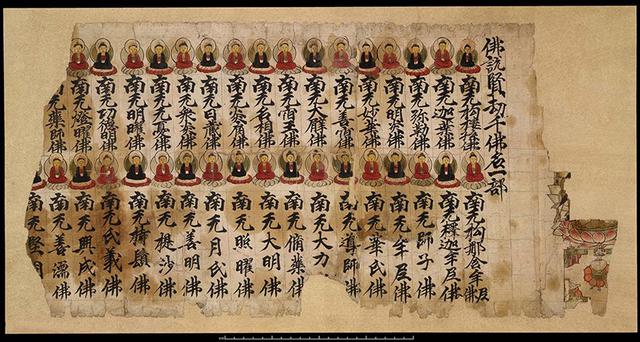 佛説賢劫千佛名一部
南无拘樓孫佛
南无拘那含牟尼佛
南无迦葉佛
南无釋迦牟尼佛
南无弥勒佛
南无師子佛
南无明炎佛
南无牟尼佛
南无妙華佛
南无華氏佛
南无善宿佛
南无導師佛
南无大臂佛
南无大力
南无宿王佛
南无脩藥佛
南无名相佛
南无大明佛
南无炎肩佛
南无照曜佛
南无日藏佛
南无月氏佛
南无衆炎佛
南无善明佛
南无无憂佛
南无提沙佛
南无明曜佛
南无持鬘佛
南无功德明佛
南无氏義佛
南无燈曜佛
南无興成佛
无藥師佛
南无善濡佛
南无堅